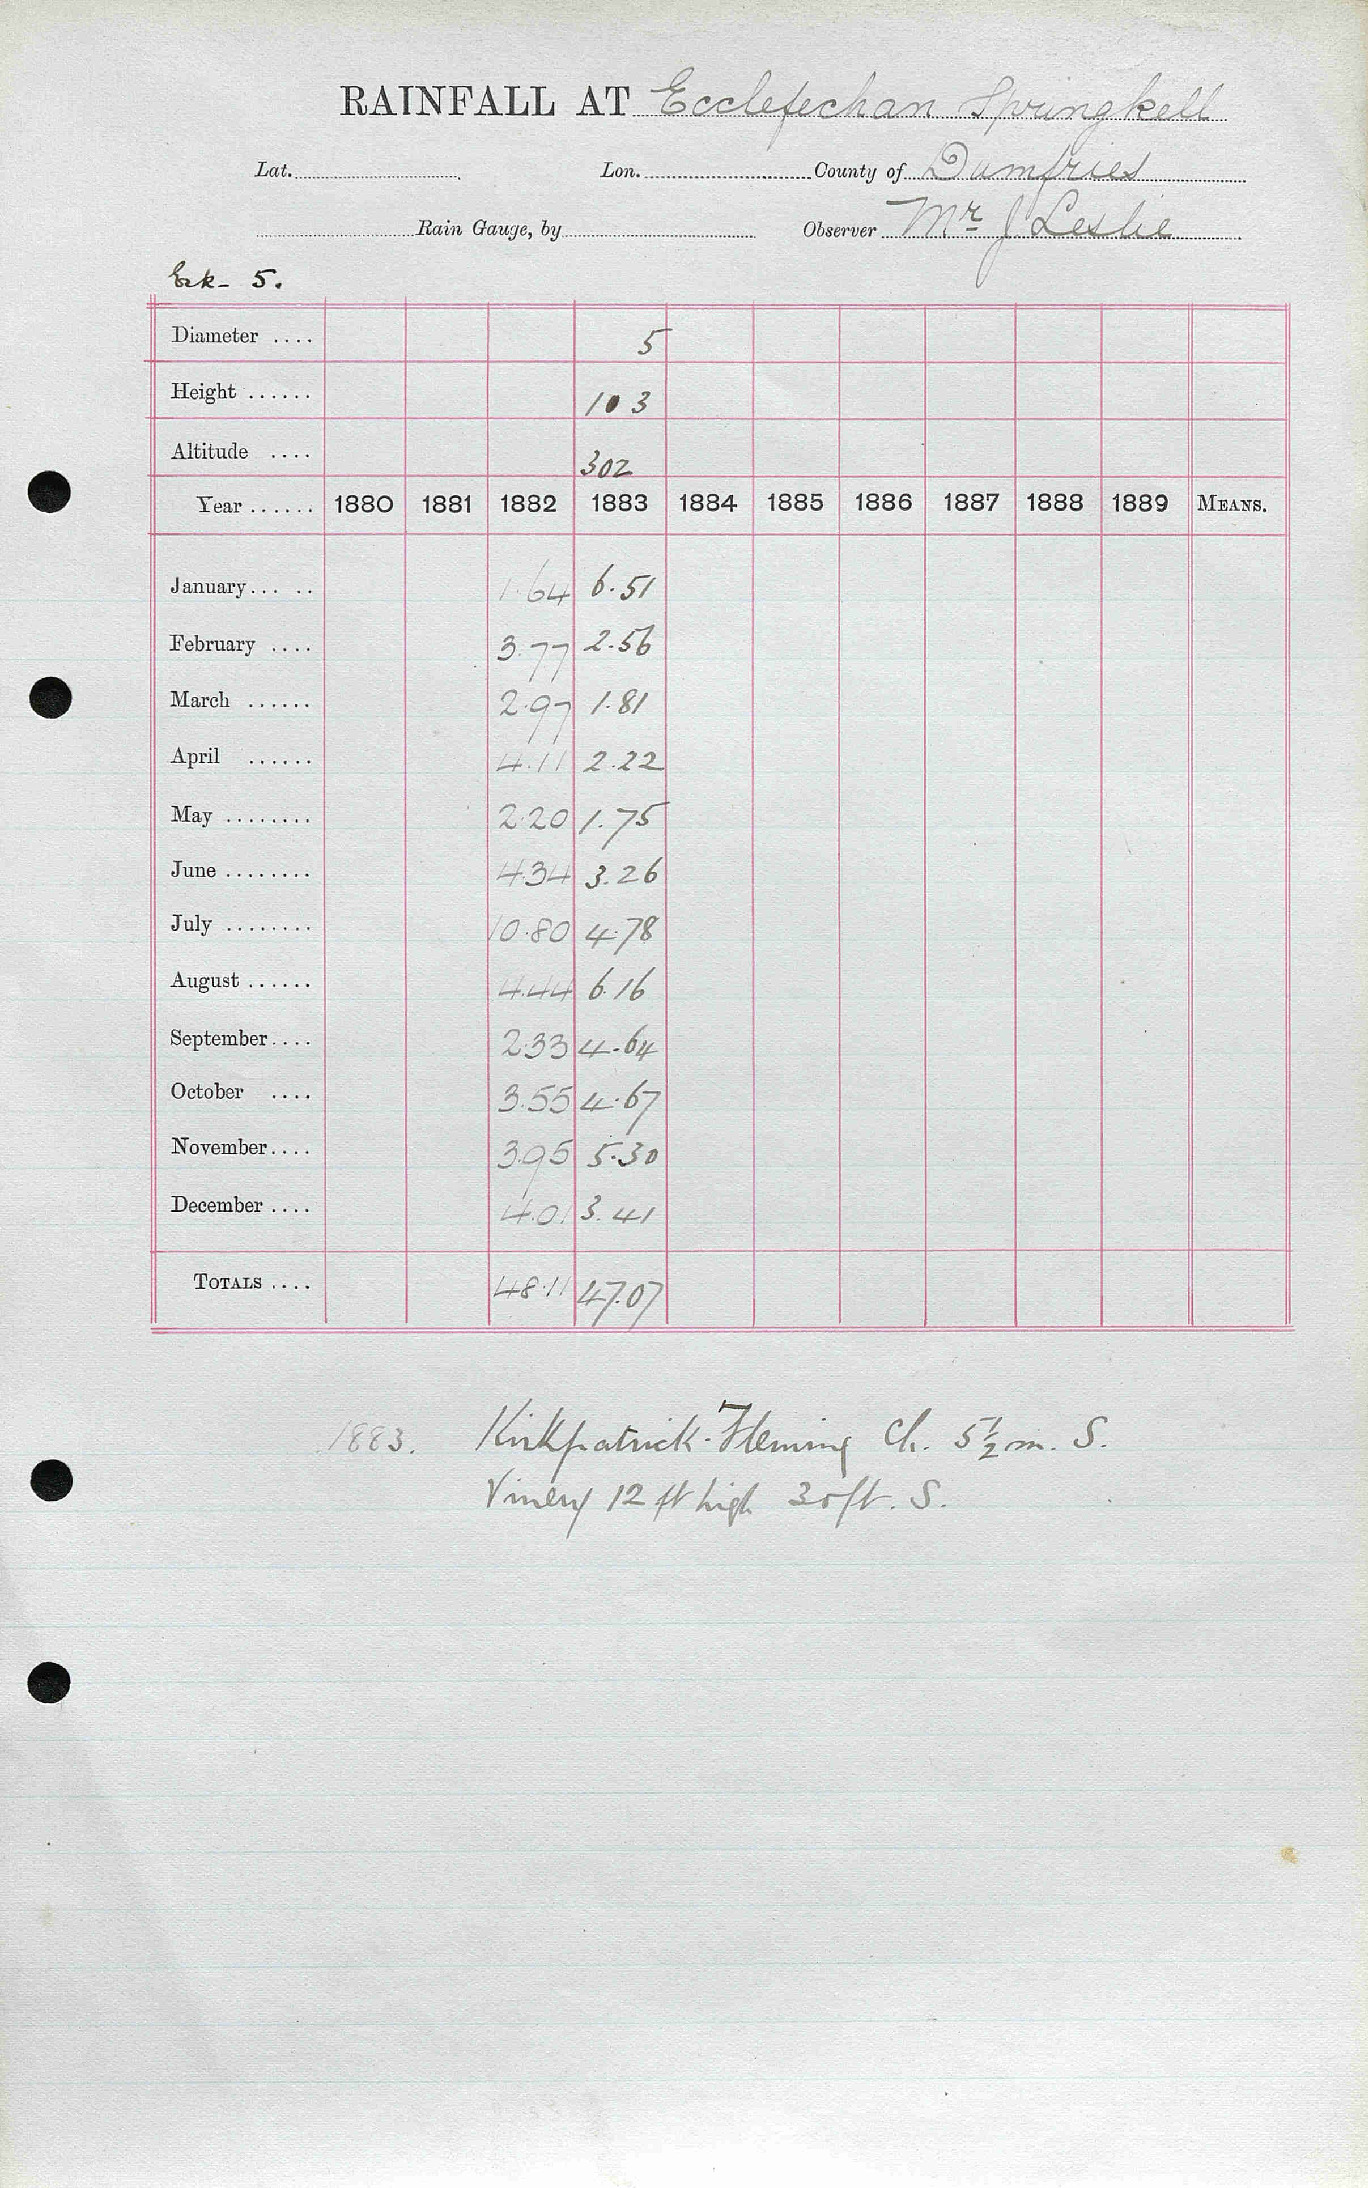 RAINFALL AT Ecclefechan Springkell
Lat. Lon. County of Dumfries
Rain Gauge, by Observer Mr J Leslie
Esk - 5.
Diameter .... 5
Height ...... 1 0 3
Altitude .... 302
Year ...... 1880 1881 1882 1883 1884 1885 1886 1887 1888 1889 MEANS.
January... .. 1.64 6.51
February .... 3.77 2.56
March ...... 2.97 1.81
April ...... 4.11 2.22
May ........ 2.20 1.75
June ........ 4.34 3.26
July ........ 10.80 4.78
August ...... 4.44 6.16
September.... 2.33 4.64
October .... 3.55 4.67
November.... 3.95 5.30
December .... 4.01 3.41
TOTALS .... 48.11 47.07
1883. Kirkpatrick-Fleming Ch. 5½ m. S.
Vinery 12 ft high 30 ft. S.